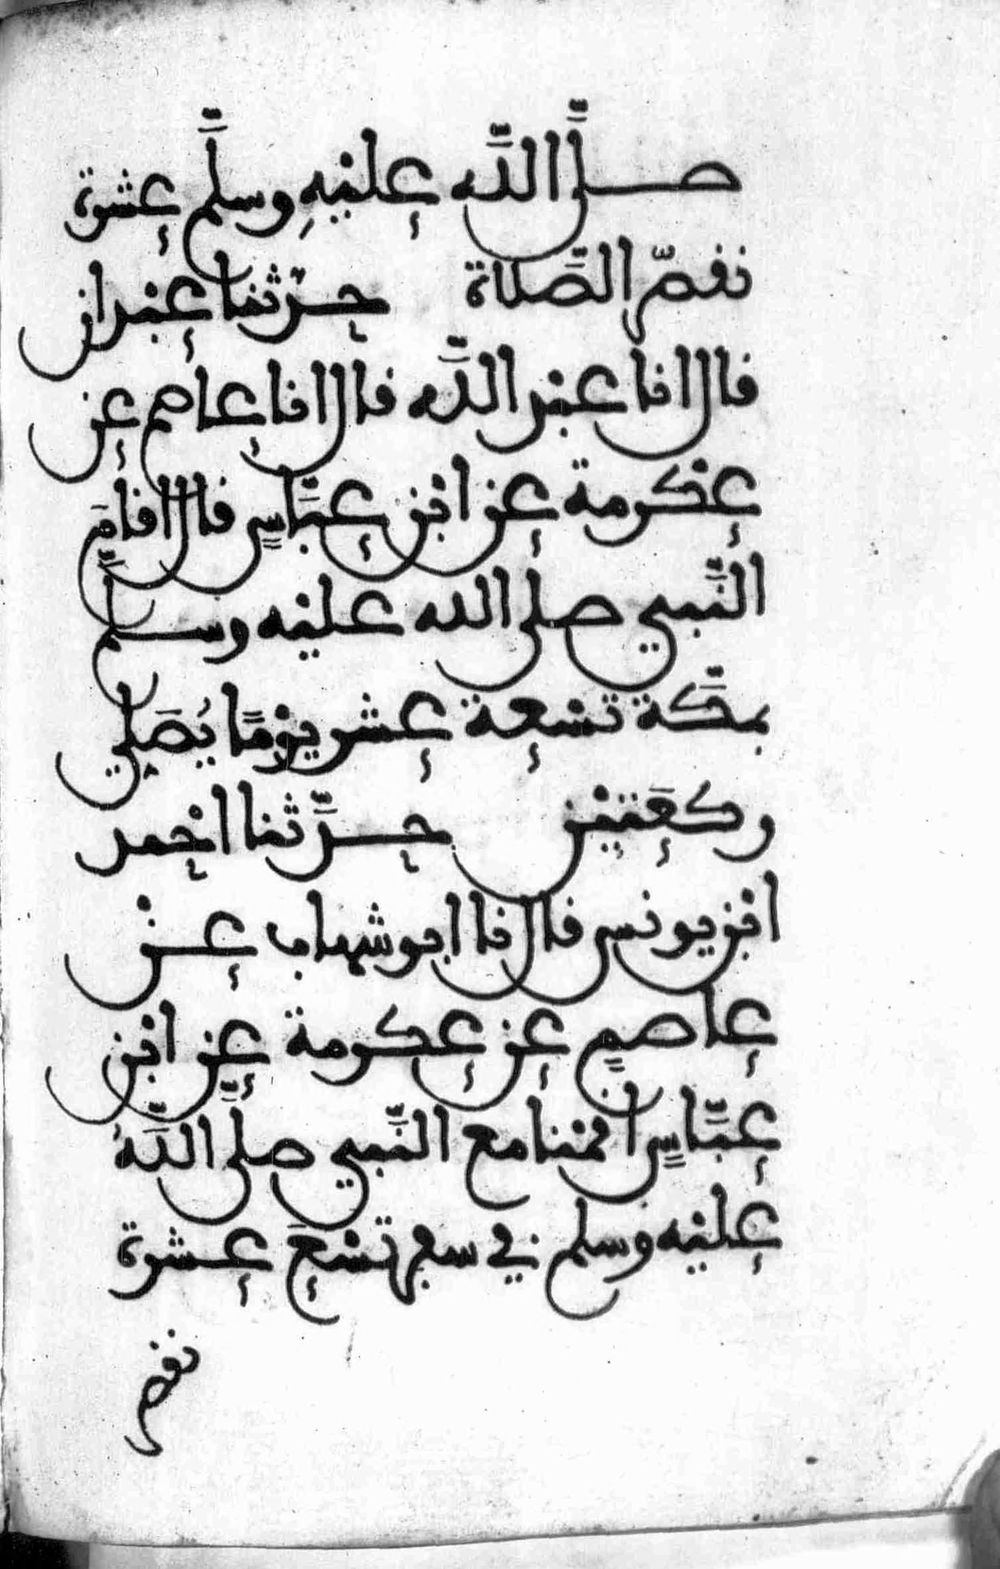 صلَّى اللَّه عليْهِ وسلَّم عشرة
نقصّر الصَّلاة حدّثنا عبْدان
قال انا عبْد اللَّه قال انا عاصم عن
عكْرمة عن ابْن عبَّاسٍ قال اقامَ
النَّبي صلى الله عليْه وسلم
بمكَّة تسْعة عشر يوْمًا يُصَلي
ركعَتيْن حدَّثنا احْمد
ابْن يونس قال نا ابو شهاب عنْ
عاصمٍ عن عكرمة عن ابْن
عبَّاسٍ اقمْنا مع النَّبي صلَّى اللَّهُ
عليْه وسلم في سفر تسْعَ عشرة
نقصر